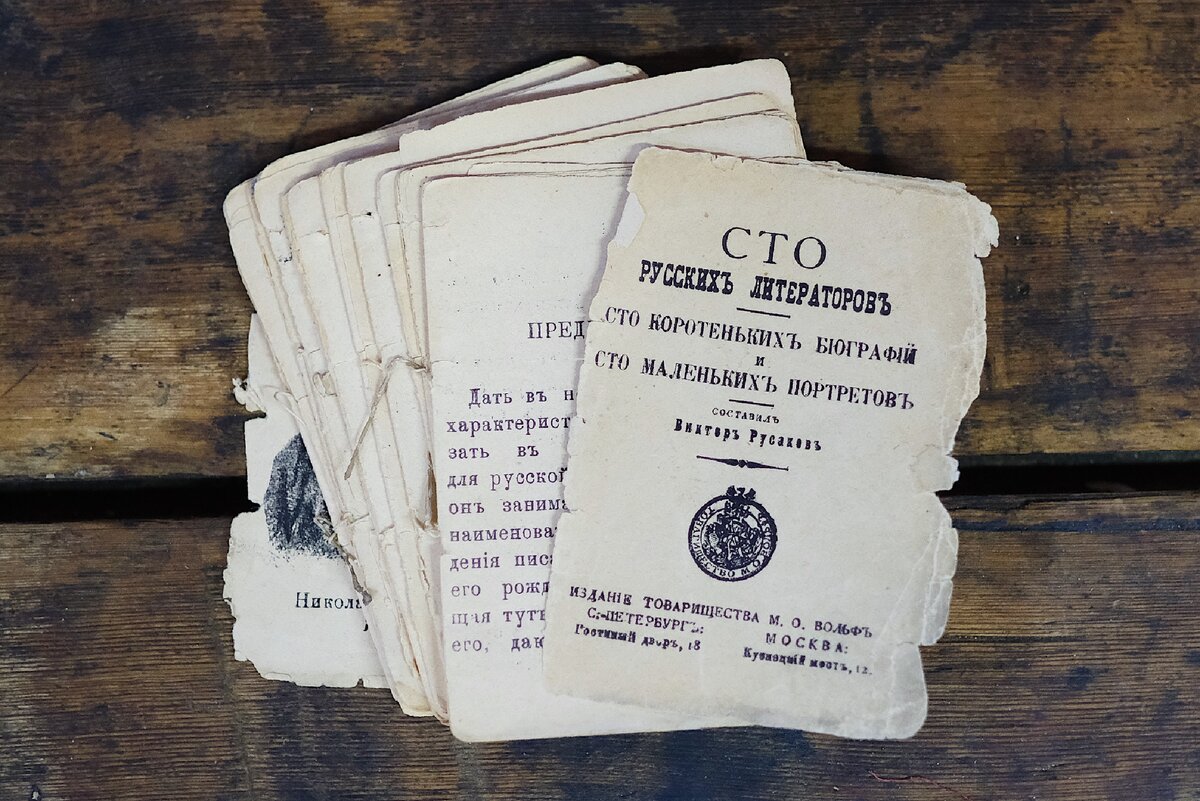 СТО
РУССКИХЪ ЛИТЕРАТОРОВЪ
СТО КОРОТЕНЬКИХЪ БІОГРАФІЙ
и
СТО МАЛЕНЬКИХЪ ПОРТРЕТОВЪ
СОСТАВИЛЪ
Викторъ Русаковъ
ТОВАРИЩЕСТВО М О ВОЛЬФЪ
ИЗДАНІЕ ТОВАРИЩЕСТВА М. О. ВОЛЬФЪ
С.-ПЕТЕРБУРГЪ:
Гостиный дворъ, 18
МОСКВА:
Кузнецкій мостъ, 12.
ПРЕД
Дать въ н
характерист
зать въ
для русской
онъ занима
наименова
денія писа
его рожд
щая тутъ
его, даю
Никола